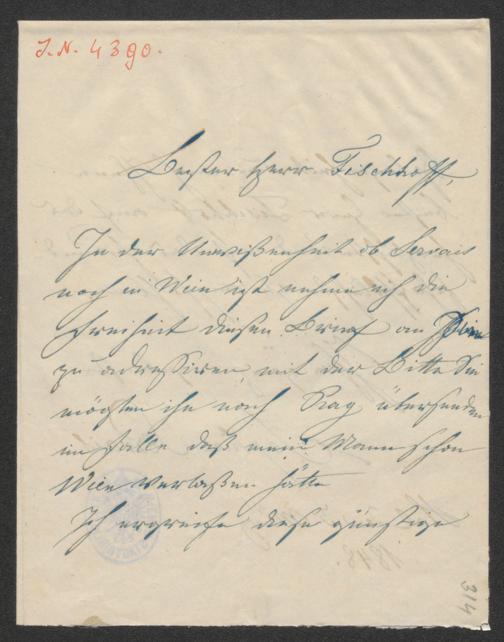 I.N. 4390.
Bester Herr Fischhoff,
In der Unwißenheit ob Servais
noch in Wien ist nehme ich die
Freiheit diesen Brief an
zu adressiren, mit der Bitte Sie
mögten ihn nach Prag übersenden
im Falle daß mein Mann schon
Wien verlaßen hätte
Ich ergreife diese günstige
1848.
314